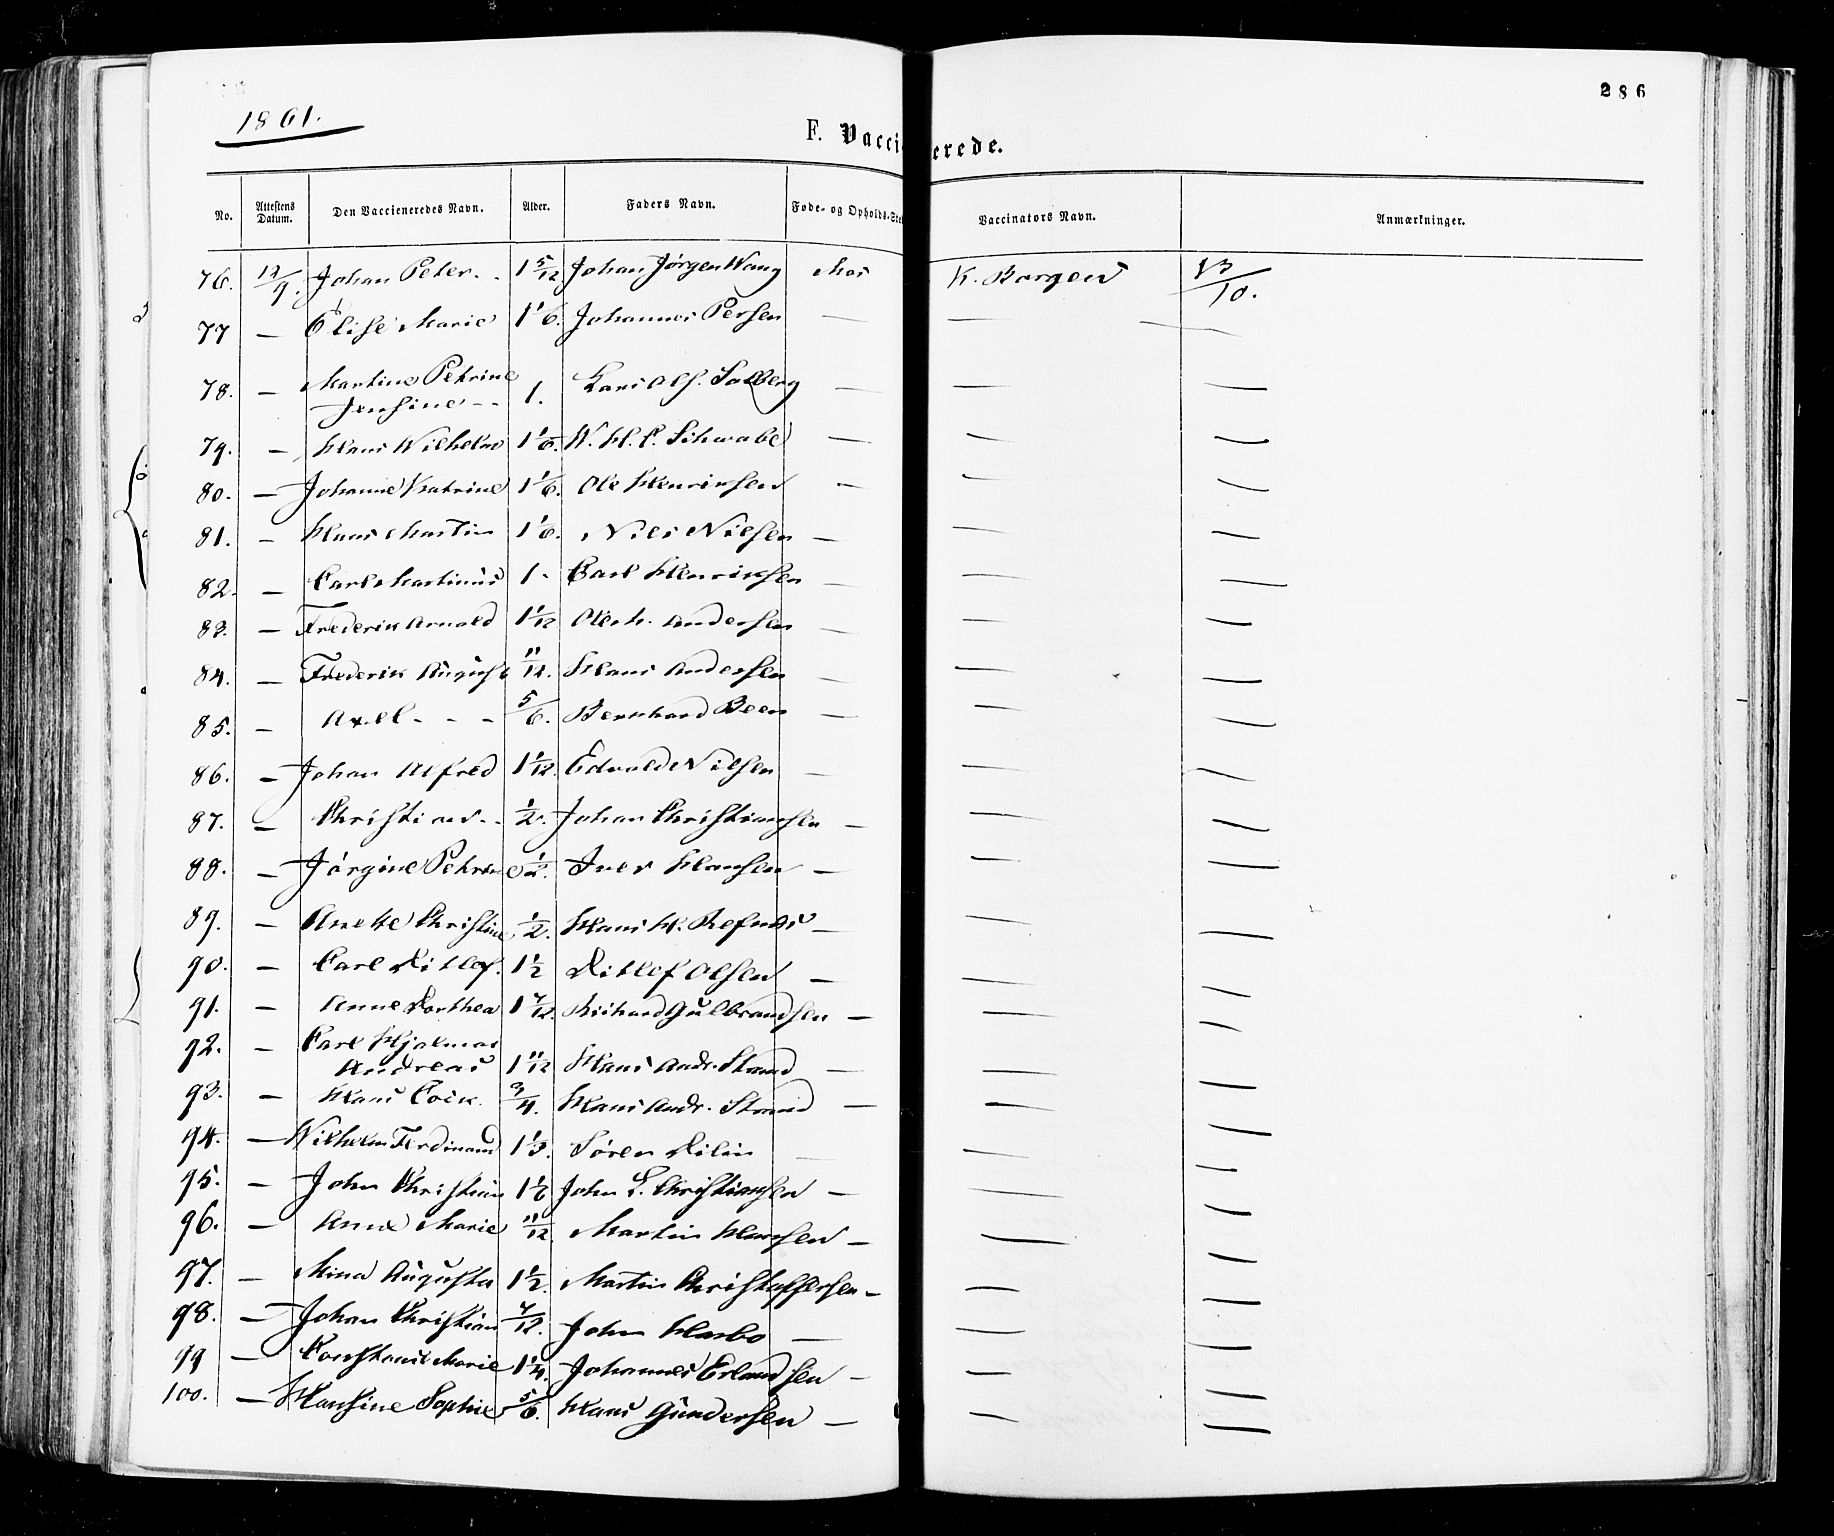 286
1861.
F. Vaccienerede.
No. Attestens Datum. Den Vaccieneredes Navn. Alder. Faders Navn. Føde- og Opholds-Ste Vaccinators Navn. Anmærkninger.
76. 12/9. Johan Peter. - 1 5/12 Johan Jørgen Wang Mos K. Borgen 13/10.
77 — Elise Marie 1 1/6. Johannes Persen — — —
78. — Martine Petrine
Jensine - - 1. Lars Ols. Solberg — — —
79. — Hans Wilhelm 1 1/6. W. H. C. Schwabe — — —
80. — Johanne Katrine 1 1/6. Ole Henriksen — — —
81. — Hans Martin 1 1/6. Nils Nilsen — — —
82. — Carl Martinus 1 - Carl Henriksen — — —
83. — Frederik Arnold 1 1/12 Ole M. Andersen — — —
84. — Frederik August 11/12. Hans Andersen — — —
85. — Axel - - - 5/6. Bernhard Been — — —
86. — Johan Alfred 1 1/12. Edvald Nilsen — — —
87. — Christian - - 1/2. Johan Christiansen — — —
88. — Jørgine Petrine 1/2. Iver Hansen — — —
89. — Anette Christine 1/2. Hans H. Refnes — — —
90. — Carl Ditlef. 1 1/2 Ditlef Olsen — — —
91. — Anne Dorthea 1 7/12. Richard Gulbrandsen — — —
92. — Carl Hjalmar
Andreas 1 11/12 Hans Andr. Strand — — —
93. — Hans Coik. 3/4. Hans Andr. Strand — — —
94. — Wilhelm Ferdinand 1 1/3. Søren — — —
95. — John Christian 1 1/6 John L. Christiansen — — —
96. — Anne Marie 11/12 Martin Hansen — — —
97. — Mina Augusta 1 1/2. Martin Christoffersen — — —
98. — Johan Christian 7/12. John Harbo — — —
99 — Constanse Marie 1 1/4. Johannes Erlandsen — — —
100. — Hansine Sophie 5/6. Hans Gundersen — — —